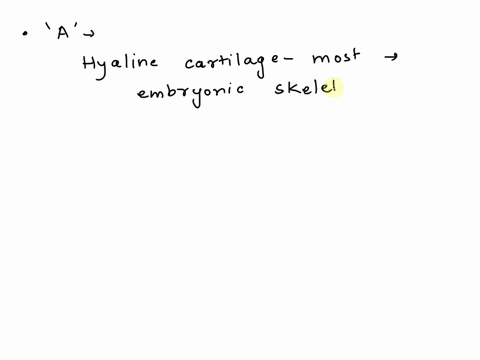 • 'A' →
Hyaline cartilage - most →
embryonic skelel